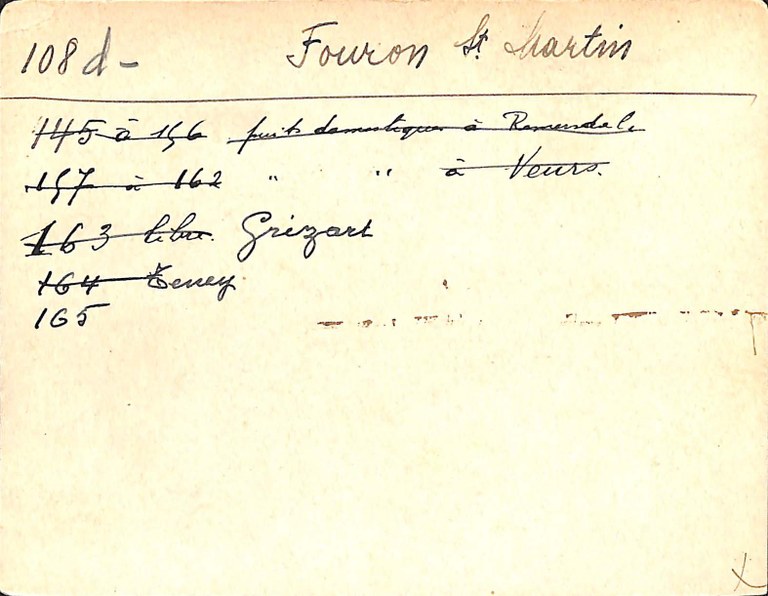 108 d - Fouron St. Martin
145 à 156 puits domestiques à Remersdale
157 à 162 " " à Veurs.
163 libre. Grézart
164 Teney
165